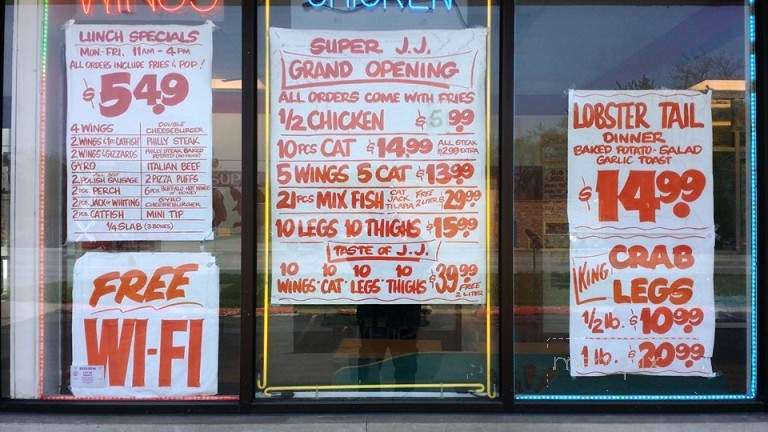 WINGS
CHICKEN
LUNCH SPECIALS
MON-FRI. 11AM - 4PM
ALL ORDERS INCLUDE FRIES & POP!
$5.49
4 WINGS DOUBLE CHEESEBURGER
2 WINGS & 1PC CATFISH PHILLY STEAK
2 WINGS & GIZZARDS PHILLY STEAK BAKED POTATO
GYRO ITALIAN BEEF
2 POLISH SAUSAGE 2 PIZZA PUFFS
2 PCS. PERCH 6 PCS. BUFFALO HOT WINGS
2 PCS. JACK OR WHITING GYRO CHEESEBURGER
2 PCS. CATFISH MINI TIP
1/4 SLAB (3-BONES)
FREE
WI-FI
SUPER J.J.
GRAND OPENING
ALL ORDERS COME WITH FRIES
1/2 CHICKEN $5.99
10 PCS CAT $14.99 ALL STEAK $2.99 EXTRA
5 WINGS 5 CAT $13.99
21 PCS MIX FISH CAT JACK TILAPIA FREE 2 LITER $29.99
10 LEGS 10 THIGHS $15.99
TASTE OF J.J.
10 10 10 10
WINGS "CAT" LEGS "THIGHS $39.99 FREE 2 LITER
LOBSTER TAIL
DINNER
BAKED POTATO - SALAD
GARLIC TOAST
$14.99
KING CRAB
LEGS
1/2 lb. $10.99
1 lb. $20.99